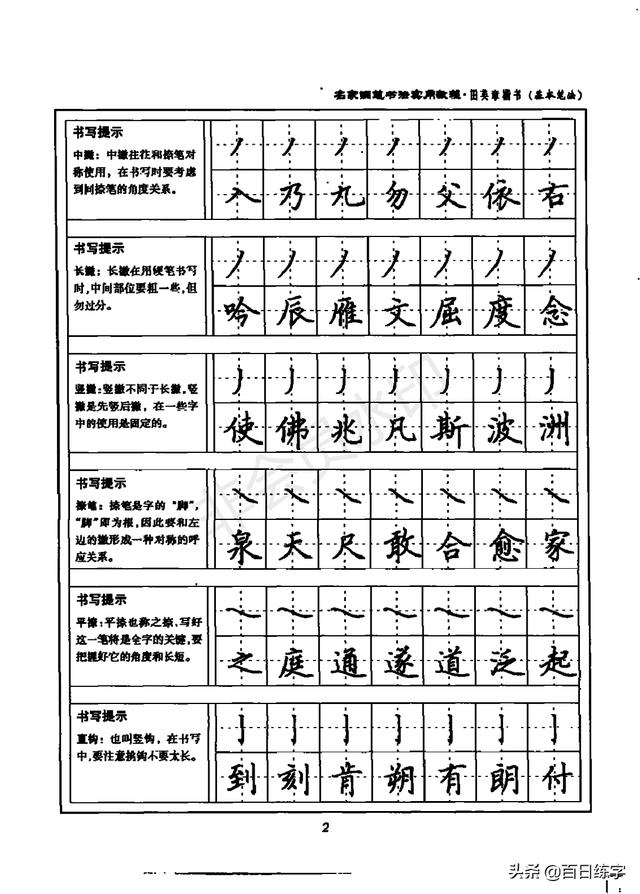 名家钢笔书法实用教程·田英章楷书（基本笔法）
书写提示
中撇：中撇往往和捺笔对
称使用，在书写时要考虑
到同捺笔的角度关系。
入 乃 九 勿 父 依 右
书写提示
长撇：长撇在用硬笔书写
时，中间部位要粗一些，但
勿过分。
吟 辰 雁 文 屈 度 念
书写提示
竖撇：竖撇不同于长撇，竖
撇是先竖后撇，在一些字
中的使用是固定的。
使 佛 兆 凡 斯 波 洲
书写提示
捺笔：捺笔是字的“脚”，
“脚”即为根，因此要和左
边的撇形成一种对称的呼
应关系。
泉 天 尺 敢 合 愈 家
书写提示
平捺：平捺也称之捺，写好
这一笔将是全字的关键，要
把握好它的角度和长短。
之 庭 通 遂 道 泛 起
书写提示
直钩：也叫竖钩，在书写
中，要注意挑钩不要太长。
到 刻 肯 朔 有 朗 付
非会员水印
2
头条 @百日练字